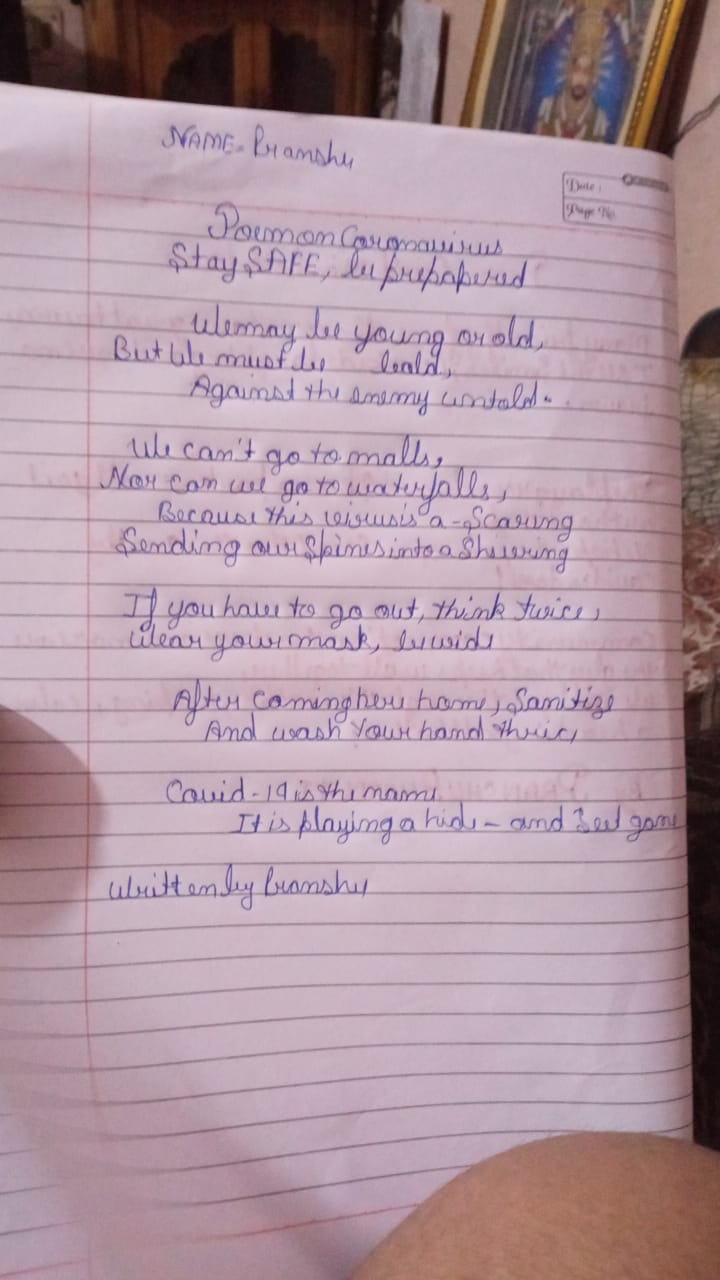 NAME = Pranshu
Date :
Page No.
Poem on Coronavirus
Stay SAFE, be prepapered
We may be young or old,
But We must be bold,
Against the enemy untold.
We can't go to malls,
Nor can we go to waterfalls,
Because this virus is a - Scaring
Sending our Spines into a Shivering
If you have to go out, think twice,
Wear your mask, be wide
After coming here home, Sanitize
And wash Your hand thrice,
Covid-19 is the name
It is playing a hide - and Seek game
Written by Pranshu